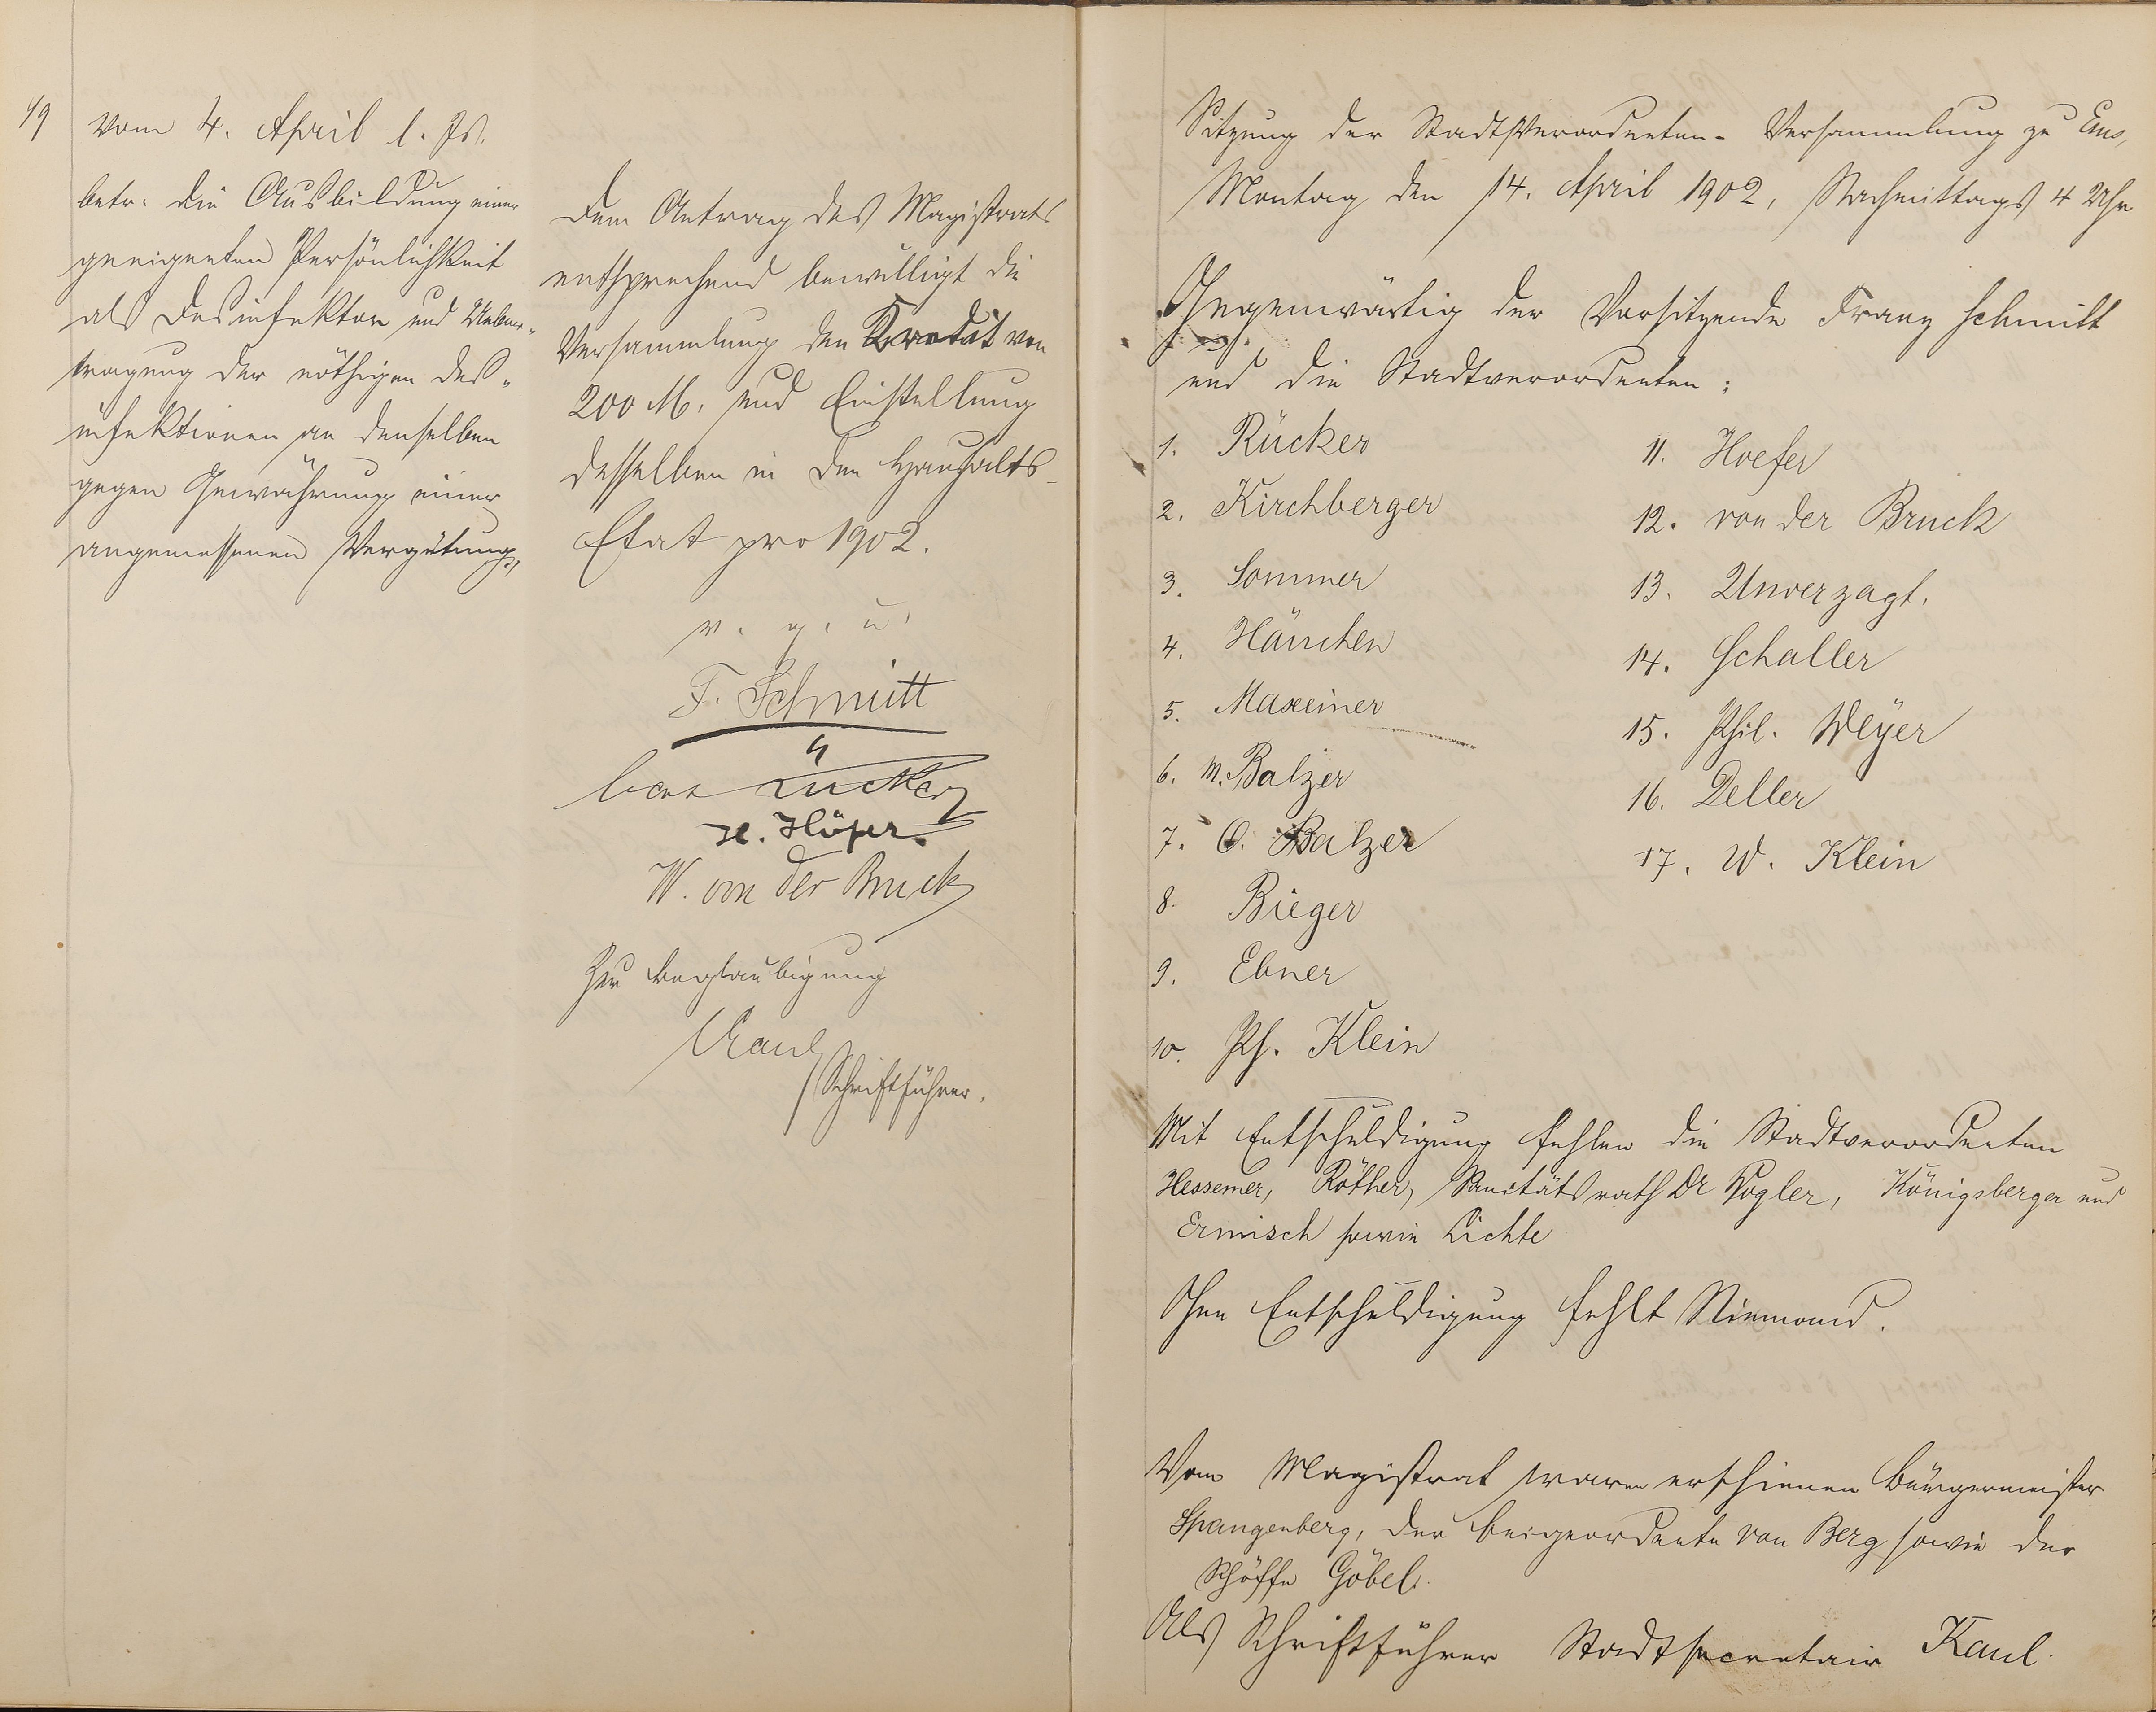 49
vom 4. April l. Js.
betr. die Ausbildung einer
geeigneten Persönlichkeit
als Desinfektor und Ueber-
tragung der nöthigen Des-
infektionen an denselben
gegen Gewährung einer
angemessenen Vergütung,
Dem Antrag des Magistrats
entsprechend bewilligt die
Versammlung den Kredit von
200 M. und Einstellung
desselben in den Haushalts-
Etat pro 1902.
v. g. u.
F. Schmitt
Rücker
H. Höfer
W. von der Bruck
Zur Beglaubigung
Kaul
Schriftführer.
Sitzung der Stadtverordneten-Versammlung zu Ems,
Montag den 14. April 1902, Nachmittags 4 Uhr
Gegenwärtig der Vorsitzende Franz Schmitt
und die Stadtverordneten:
1. Rücker
2. Kirchberger
3. Sommer
4. Hänchen
5. Maxeiner
6. M. Balzer
7. O. Balzer
8. Bieger
9. Ebner
10. Ph. Klein
11. Hoefer
12. von der Bruck
13. Unverzagt.
14. Schaller
15. Phil. Weyer
16. Deller
17. W. Klein
Mit Entschuldigung fehlen die Stadtverordneten
Hessemer, Röther, Sanitätsrath Dr Vogler, Königsberger und
Ermisch sowie Lichte
Ohne Entschuldigung fehlt Niemand.
Vom Magistrat waren erschienen Bürgermeister
Spangenberg, der Beigeordnete von Berg sowie der
Schöffe Göbel.
Als Schriftführer Stadtsecretair Kaul.